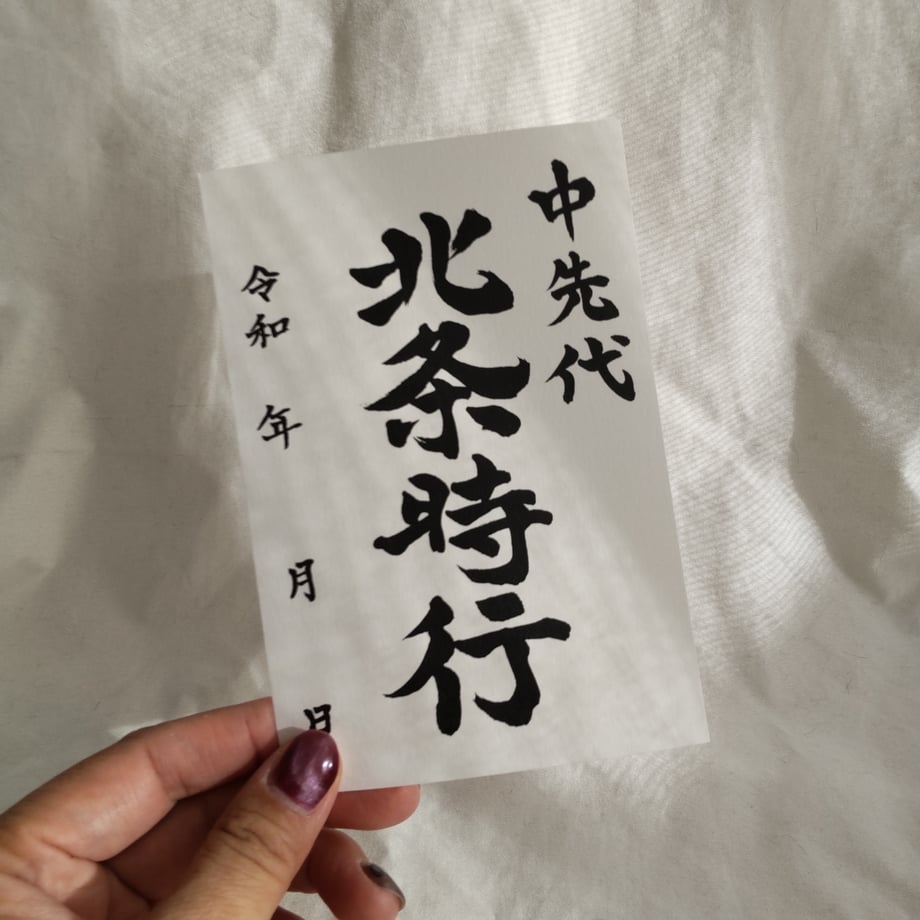 中先代
北条時行
令和 年 月 日